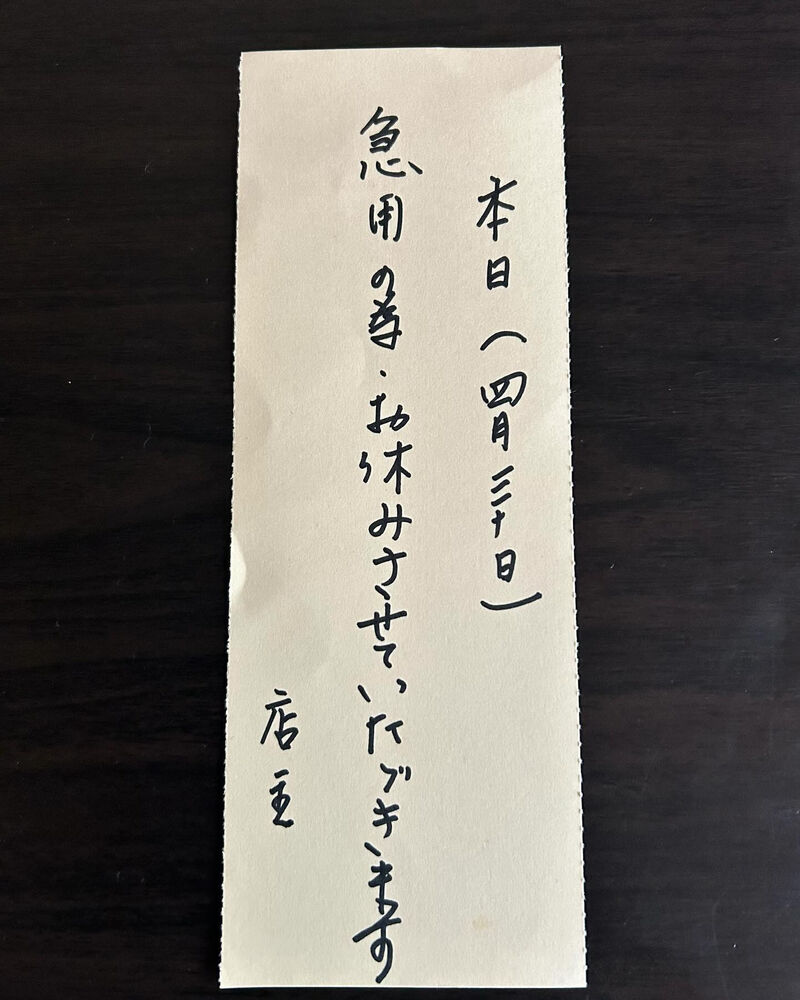 本日(四月三十日)
急用の為・お休みさせていただきます
店主